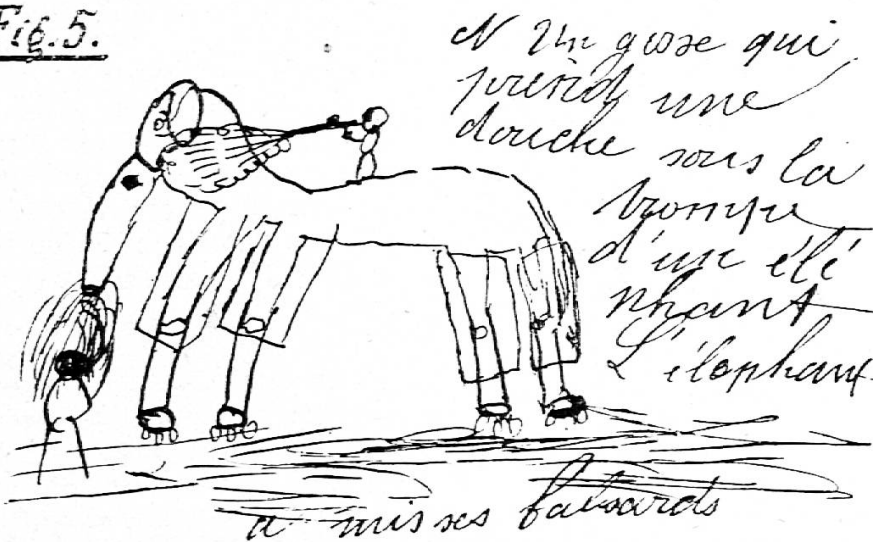 Fig. 5.
N Un gosse qui
prend une
douche sous la
trompe
d'un élé
phant
L'élephant
a mis ses falsards